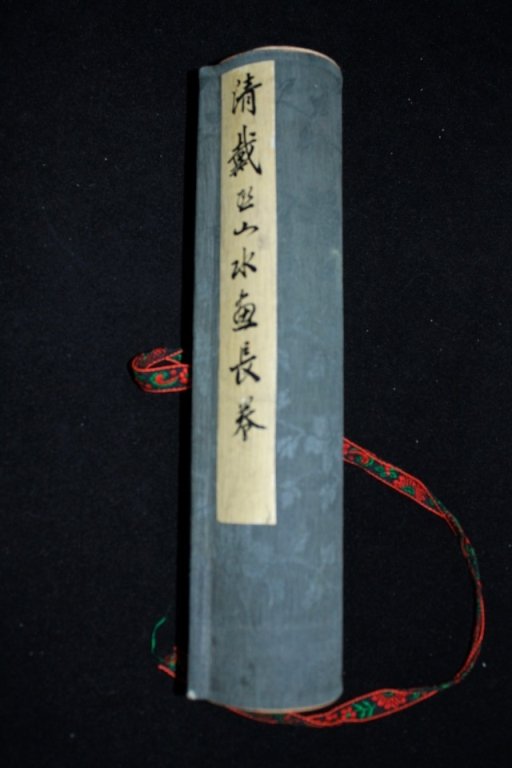 清戴熙山水畫長卷